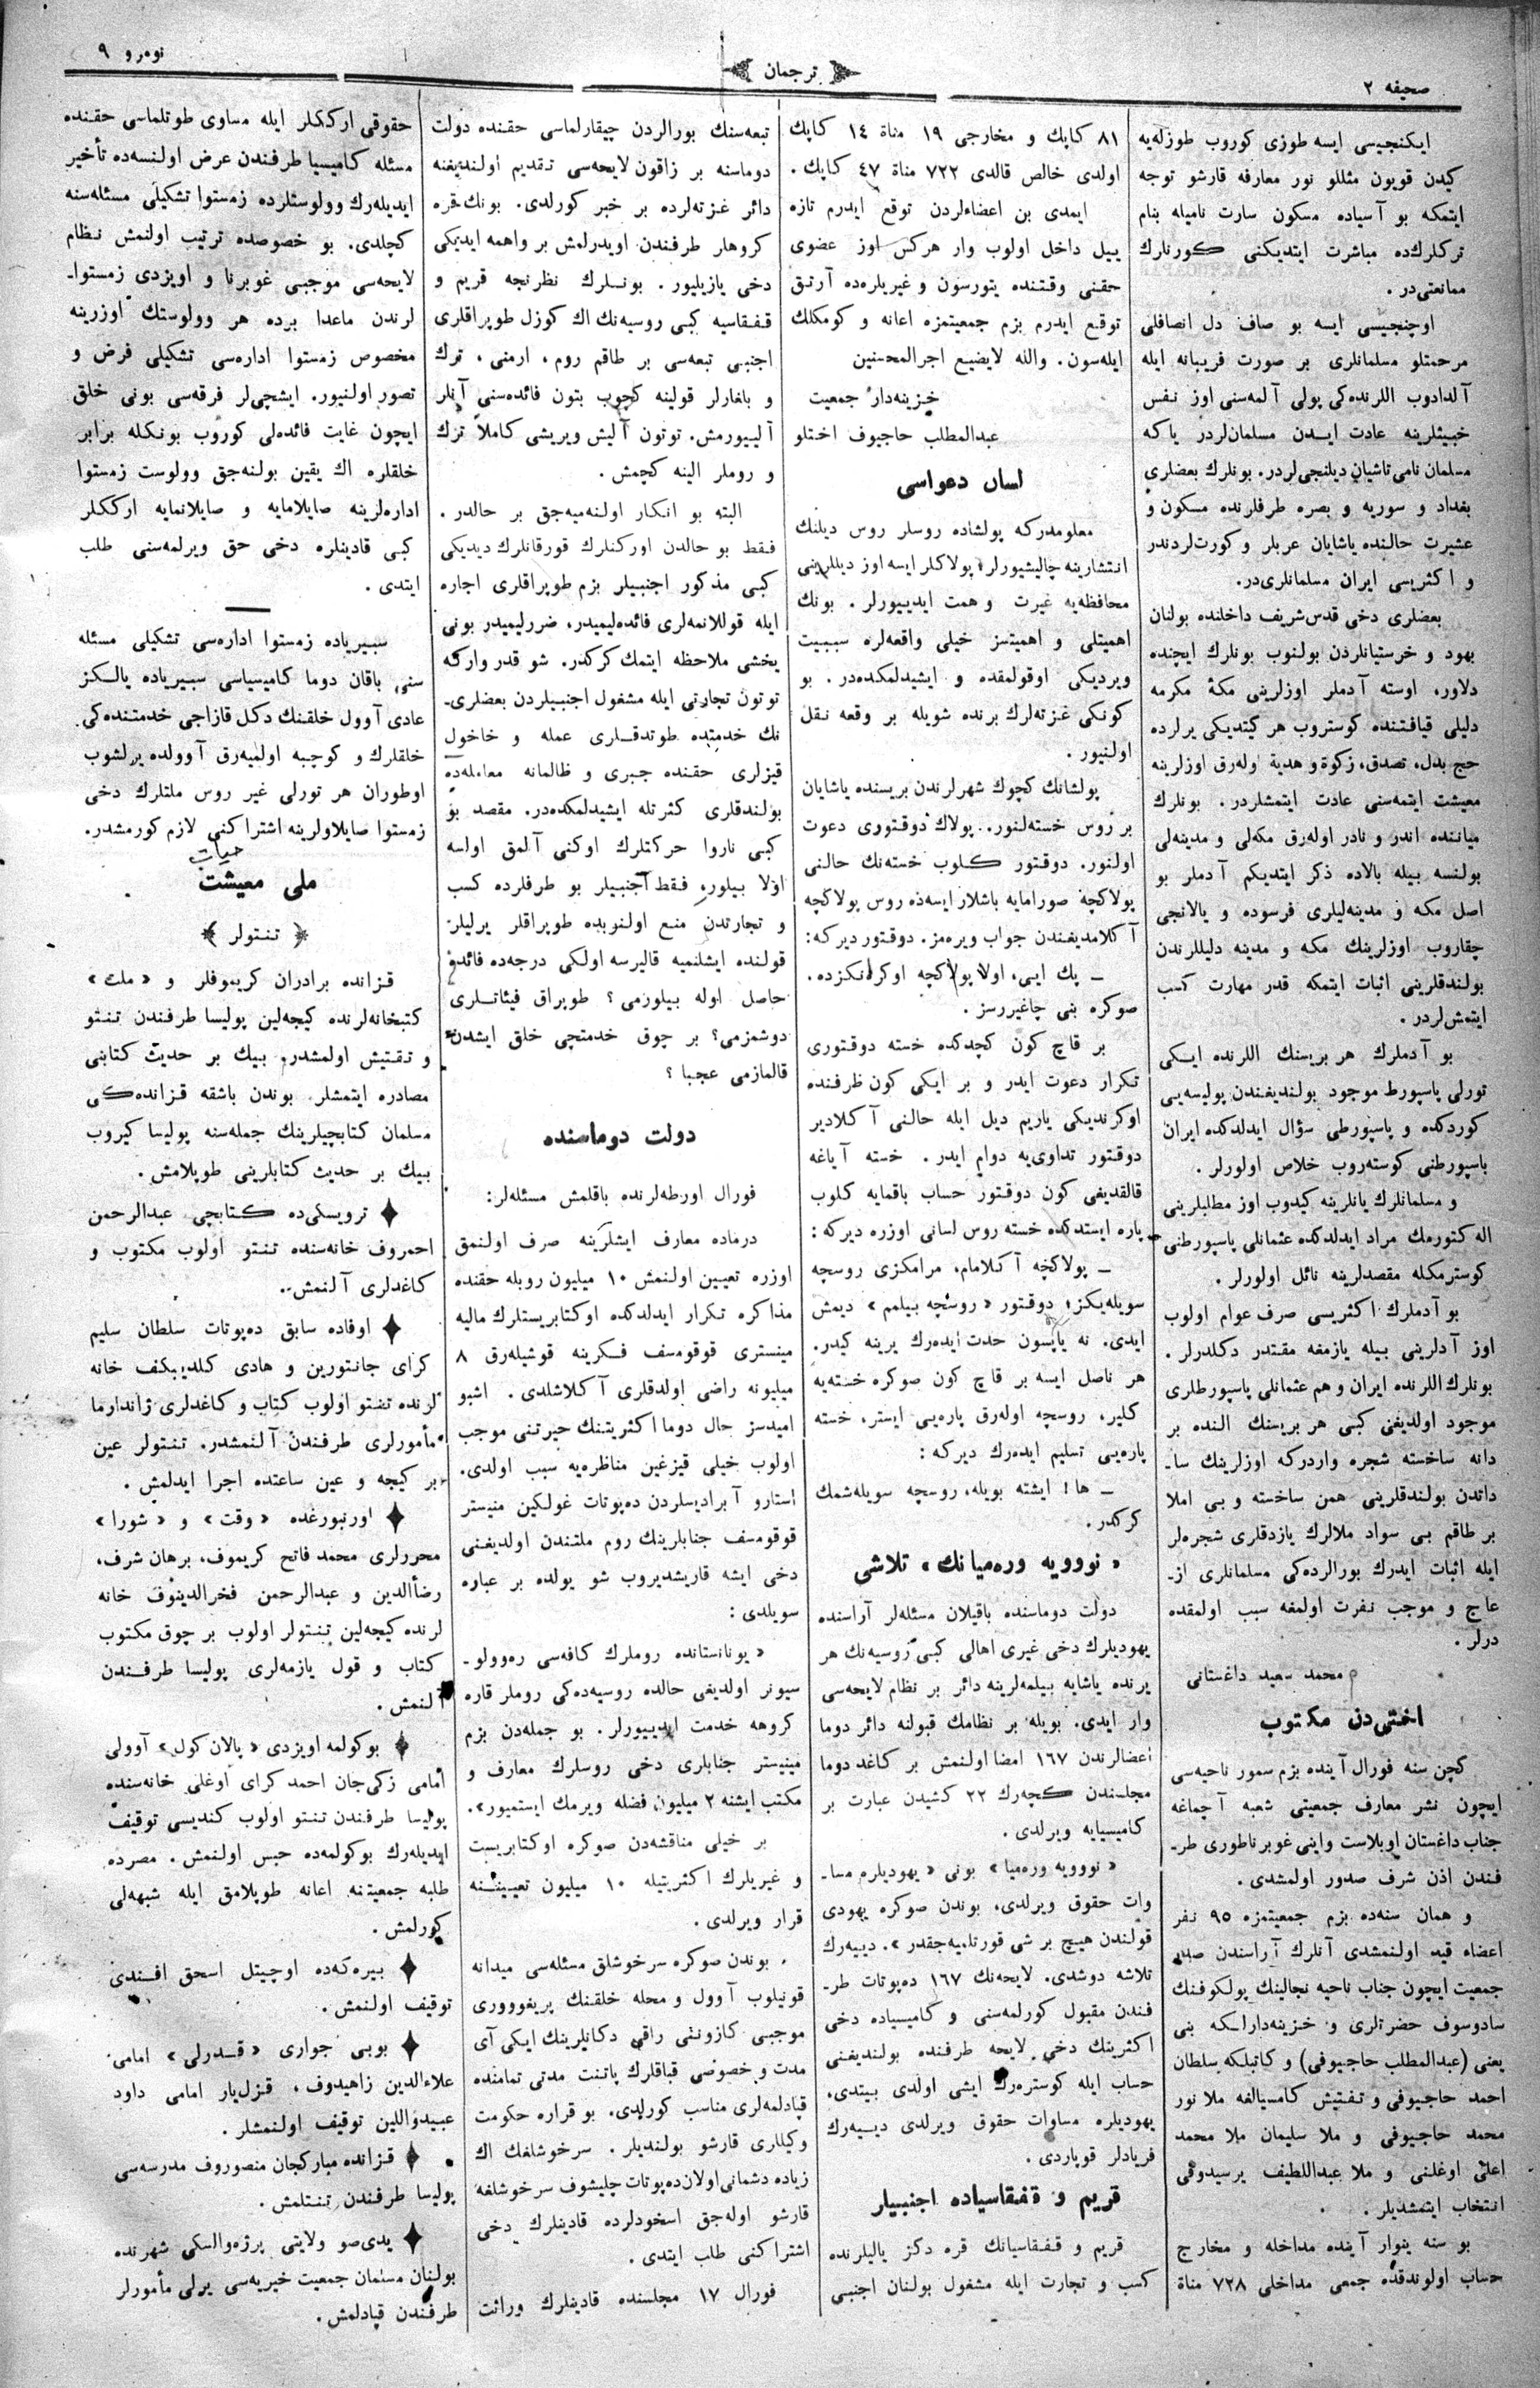 صحیفه ۲
ترجمان
نومرو ۹
ایکنجیسی ایسه طوزی کوروب طوزله‌یه
کیدن قویون مثللو نور معارفه قارشو توجه
ایتمکه بو آسیاده مسکون سارت نامیله بنام
ترکلرکده مباشرت ایتدیکنی کورنلرك
ممانعتی‌در .
اوچنجیسی ایسه بو صاف دل انصافلی
مرحمتلو مسلمانلری بر صورت فریبانه ایله
آلدادوب اللرنده‌کی پولی آلمه‌سنی اوز نفس
خبیثلرینه عادت ایدن مسلمان‌لردر یاکه
مسلمان نامی تاشیان دیلنجی‌لردر. بونلرك بعضلری
بغداد و سوریه و بصره طرفلرنده مسکون و
عشیرت حالنده یاشایان عربلر و کورت‌لردندر
و اکثریسی ایران مسلمانلری‌در.
بعضلری دخی قدس‌شریف داخلنده بولنان
یهود و خرستیانلردن بولنوب بونلرك ایچنده
دلاور، اوسته آدملر اوزلرینی مکهٔ مکرمه
دلیلی قیافتنده کوستروب هر کیتدیکی یرلرده
حج بدل، تصدق، زکوة و هدیة اوله‌رق اوزلرینه
معیشت ایتمه‌سنی عادت ایتمشلردر. بونلرك
میاننده اندر و نادر اوله‌رق مکه‌لی و مدینه‌لی
بولنسه بیله بالاده ذکر ایتدیکم آدملر بو
اصل مکه و مدینه‌لیلری فرسوده و یالانجی
چقاروب اوزلرینك مکه و مدینه دلیللرندن
بولندقلرینی اثبات ایتمکه قدر مهارت کسب
ایتمش‌لردر .
بو آدملرك هر بریسنك اللرنده ایکی
تورلی پاسپورط موجود بولندیغندن پولیسه‌یی
کوردکده و پاسپورطی سؤال ایدلدکده ایران
پاسپورطنی کوسته‌روب خلاص اولورلر .
و مسلمانلرك یانلرینه کیدوب اوز مطالبلرینی
اله کتورمك مراد ایدلدکده عثمانلی پاسپورطنی
کوسترمکله مقصدلرینه نائل اولورلر .
بو آدملرك اکثریسی صرف عوام اولوب
اوز آدلرینی بیله یازمغه مقتدر دکلدرلر .
بونلرك اللرنده ایران و هم عثمانلی پاسپورطلری
موجود اولدیغی کبی هر بریسنك النده بر
دانه ساخته شجره واردرکه اوزلرینك سا-
داتدن بولندقلرینی همن ساخته و بی املا
بر طاقم بی سواد ملالرك یازدقلری شجره‌لر
ایله اثبات ایدرك بورالرده‌کی مسلمانلری از-
عاج و موجب نفرت اولمغه سبب اولمقده
درلر .
محمد سعید داغستانی
اختی‌دن مکتوب
کچن سنه فورال آینده بزم سمور ناحیه‌سی
ایچون نشر معارف جمعیتی شعبه آچماغه
جناب داغستان اوبلاست واینی غوبرناطوری طر-
فندن اذن شرف صدور اولمشدی .
و همان سنه‌ده بزم جمعیتمزه ۹۵ نفر
اعضاء قید اولنمشدی آنلرك آراسندن
جمعیت ایچون جناب ناحیه نجالینك پولکوفنك
سادوسوف حضرتلری و خزینه‌دارلکه بنی
یعنی (عبدالمطلب حاجیوفی) و کاتبلکه سلطان
احمد حاجیوفی و تفتیش کامسیالغه ملا نور
محمد حاجیوفی و ملا سلیمان ملا محمد
اعلی اوغلنی و ملا عبداللطیف یرسیدوفی
انتخاب ایتمشدیلر .
بو سنه ینوار آینده مداخله و مخارج
حساب اولوندقده جمعی مداخلی ۷۲۸ مناة
۸۱ کاپك و مخارجی ۱۹ مناة ۱٤ کاپك
اولدی خالص قالدی ۷۲۲ مناة ٤۷ کاپك .
ایمدی بن اعضاءلردن توقع ایدرم تازه
ییل داخل اولوب وار هرکس اوز عضوی
حقنی وقتنده یتورسون و غیریلره‌ده آرتق
توقع ایدرم بزم جمعیتمزه اعانه و کومکلك
ایله‌سون . والله لایضیع اجرالمحسنین
خزینه‌دار جمعیت
عبدالمطلب حاجیوف اختلو
لسان دعواسی
معلومدرکه پولشاده روسلر روس دیلنك
انتشارینه چالیشیورلر، پولاکلر ایسه اوز دیللرینی
محافظه‌یه غیرت و همت ایدییورلر . بونك
اهمیتلی و اهمیتسز خیلی واقعه‌لره سببیت
ویردیکی اوقولمقده و ایشیدلمکده‌در . بو
کونکی غزته‌لرك برنده شویله بر وقعه نقل
اولنیور .
پولشانك کچوك شهرلرندن بریسنده یاشایان
بر روس خسته‌لنور. پولاك دوقتوری دعوت
اولنور. دوقتور کلوب خسته‌نك حالنی
پولاکچه صورامایه باشلار ایسه‌ده روس پولاکچه
آکلامدیغندن جواب ویره‌مز. دوقتور دیرکه:
— پك ایی، اولا پولاکچه اوکرانکزده.
صوکره بنی چاغیررسز .
بر قاچ کون کچدکده خسته دوقتوری
تکرار دعوت ایدر و بر ایکی کون ظرفنده
اوکرندیکی یاریم دیل ایله حالنی آکلادیر
دوقتور تداوی‌یه دوام ایدر . خسته آیاغه
قالقدیغی کون دوقتور حساب باقمایه کلوب
پاره ایستدکده خسته روس لسانی اوزره دیرکه :
— پولاکچه آکلامام، مرامکزی روسچه
سویله‌یکز؛ دوقتور «روسچه بیلمم» دیمش
ایدی. نه یاپسون حدت ایده‌رك یرینه کیدر.
هر ناصل ایسه بر قاچ کون صوکره خسته‌یه
کلیر، روسچه اوله‌رق پاره‌یی ایستر، خسته
پاره‌یی تسلیم ایده‌رك دیرکه :
— ها ! ایشته بویله، روسچه سویله‌شمك
کرکدر .
« نوویه وره‌میانك » تلاشی
دولت دوماسنده باقیلان مسئله‌لر آراسنده
یهودیلرك دخی غیری اهالی کبی روسیه‌نك هر
یرنده یاشایه بیلمه‌لرینه دائر بر نظام لایحه‌سی
وار ایدی. بویله بر نظامك قبولنه دائر دوما
اعضالرندن ۱٦۷ امضا اولنمش بر کاغد دوما
مجلسندن کچه‌رك ۲۲ کشیدن عبارت بر
کامیسیایه ویرلدی .
«نوویه وره‌میا» بونی «یهودیلره مسا-
وات حقوق ویرلدی، بوندن صوکره یهودی
قولندن هیچ بر شی قورتلمیه‌جقدر». دییه‌رك
تلاشه دوشدی. لایحه‌نك ۱٦۷ ده‌پوتات طر-
فندن مقبول کورلمه‌سنی و کامیسیاده دخی
اکثرینك دخی لایحه طرفنده بولندیغنی
حساب ایله کوستره‌رك ایشی اولدی بیتدی،
یهودیلره مساوات حقوق ویرلدی دییه‌رك
فریادلر قوپاردی .
قریم و قفقاسیاده اجنبیلر
قریم و قفقاسیانك قره دکز یالیلرنده
کسب و تجارت ایله مشغول بولنان اجنبی
تبعه‌سنك بورالردن چیقارلماسی حقنده دولت
دوماسنه بر زاقون لایحه‌سی تقدیم اولندیغنه
دائر غزته‌لرده بر خبر کورلدی. بونك قره
کروهلر طرفندن اویدرلمش بر واهمه ایدیکی
دخی یازیلیور . بونلرك نظرنجه قریم و
قفقاسیه کبی روسیه‌نك اك کوزل طوپراقلری
اجنبی تبعه‌سی بر طاقم روم، ارمنی، ترك
و بلغارلر قولینه کچوب بتون فائده‌سنی آنلر
آلییورمش. توتون آلیش ویریشی کاملا ترك
و روملر الینه کچمش .
البته بو انکار اولنه‌میه‌جق بر حالدر .
فقط بو حالدن اورکنلرك قورقانلرك دیدیکی
کبی مذکور اجنبیلر بزم طوپراقلری اجاره
ایله قوللانمه‌لری فائده‌لیمیدر، ضررلیمیدر بونی
یخشی ملاحظه ایتمك کرکدر. شو قدر وارکه
توتون تجارتی ایله مشغول اجنبیلردن بعضلری-
نك خدمتده طوتدقلری عمله و خاخول
قیزلری حقنده جبری و ظالمانه معامله‌ده
بولندقلری کثرتله ایشیدلمکده‌در. مقصد بو
کبی ناروا حرکتلرك اوکنی آلمق اولسه
اولا بیلور، فقط اجنبیلر بو طرفلرده کسب
و تجارتدن منع اولنوبده طوپراقلر یرلیلر
قولنده ایشلنمیه قالیرسه اولکی درجه‌ده فائده
حاصل اوله بیلورمی ؟ طوپراق فیئاتلری
دوشمزمی؟ بر چوق خدمتچی خلق ایشدن
قالمازمی عجبا ؟
دولت دوماسنده
فورال اورطه‌لرنده باقلمش مسئله‌لر:
درماده معارف ایشلرینه صرف اولنمق
اوزره تعیین اولنمش ۱۰ میلیون روبله حقنده
مذاکره تکرار ایدلدکده اوکتابریستلرك مالیه
مینستری قوقوسف فکرینه قوشیله‌رق ۸
میلیونه راضی اولدقلری آکلاشلدی . اشبو
امیدسز حال دوما اکثریتنك حیرتنی موجب
اولوب خیلی قیزغین مناظره‌یه سبب اولدی.
استارو آبرادیسلردن ده‌پوتات غولکین منیستر
قوقوسف جنابلرینك روم ملتندن اولدیغنی
دخی ایشه قاریشدیروب شو یولده بر عباره
سویلدی :
« یونانستانده روملرك کافه‌سی ره‌وولو-
سیونر اولدیغی حالده روسیه‌ده‌کی روملر قاره
کروهه خدمت ایدییورلر. بو جمله‌دن بزم
مینیستر جنابلری دخی روسلرك معارف و
مکتب ایشنه ۲ میلیون فضله ویرمك ایستمیور».
بر خیلی مناقشه‌دن صوکره اوکتابریست
و غیریلرك اکثریتیله ۱۰ میلیون تعیینـنه
قرار ویرلدی .
بوندن صوکره سرخوشلق مسئله‌سی میدانه
قونیلوب آوول و محله خلقنك پریغوووری
موجبی کازونئی راقی دکانلرینك ایکی آی
مدت و خصوصی قباقلرك پاتنت مدتی تمامنده
قپادلمه‌لری مناسب کورلدی. بو قراره حکومت
وکیللری قارشو بولندیلر . سرخوشلغك اك
زیاده دشمانی اولان ده‌پوتات چلیشوف سرخوشلغه
قارشو اوله‌جق اسخودلرده قادینلرك دخی
اشتراکنی طلب ایتدی .
فورال ۱۷ مجلسنده قادینلرك وراثت
حقوقی ارککلر ایله مساوی طوتلماسی حقنده
مسئله کامیسیا طرفندن عرض اولنسه‌ده تأخیر
ایدیله‌رك وولوستلرده زمستوا تشکیلی مسئله‌سنه
کچلدی. بو خصوصده ترتیب اولنمش نظام
لایحه‌سی موجبی غوبرنا و اویزدی زمستوا-
لرندن ماعدا برده هر وولوستك اوزرینه
مخصوص زمستوا اداره‌سی تشکیلی فرض و
تصور اولنیور. ایشچی‌لر فرقه‌سی بونی خلق
ایچون غایت فائده‌لی کوروب بونکله برابر
خلقلره اك یقین بولنه‌جق وولوست زمستوا
اداره‌لرینه صایلامایه و صایلانمایه ارککلر
کبی قادینلره دخی حق ویرلمه‌سنی طلب
ایتدی .
سیبریاده زمستوا اداره‌سی تشکیلی مسئله
سنی باقان دوما کامیسیاسی سیبریاده یالکز
عادی آوول خلقنك دکل قازاچی خدمتنده‌کی
خلقلرك و کوجبه اولمیه‌رق آوولده یرلشوب
اوطوران هر تورلی غیر روس ملتلرك دخی
زمستوا صایلاولرینه اشتراکنی لازم کورمشدر.
حیات
ملی معیشت
تنتولر
قزانده برادران کریموفلر و «ملت»
کتبخانه‌لرنده کیجه‌لین پولیسا طرفندن تنتو
و تفتیش اولمشدر. بیك بر حدیث کتابنی
مصادره ایتمشلر. بوندن باشقه قزانده‌کی
مسلمان کتابچیلرینك جمله‌سنه پولیسا کیروب
بیك بر حدیث کتابلرینی طوپلامش .
ترویسکی‌ده کتابچی عبدالرحمن
احمروف خانه‌سنده تنتو اولوب مکتوب و
کاغدلری آلنمش .
اوفاده سابق ده‌پوتات سلطان سلیم
کرای جانتورین و هادی کلدیبکف خانه
لرنده تنتو اولوب کتاب و کاغدلری ژاندارما
مأمورلری طرفندن آلنمشدر. تنتولر عین
بر کیجه و عین ساعتده اجرا ایدلمش .
اورنبورغده «وقت» و «شورا»
محررلری محمد فاتح کریموف، برهان شرف،
رضاالدین و عبدالرحمن فخرالدینوف خانه
لرنده کیجه‌لین تنتولر اولوب بر چوق مکتوب
کتاب و قول یازمه‌لری پولیسا طرفندن
آلنمش .
بوکولمه اویزدی «یالان کول» آوولی
امامی زکی‌جان احمد کرای اوغلی خانه‌سنده
پولیسا طرفندن تنتو اولوب کندیسی توقیف
ایدیله‌رك بوکولمه‌ده حبس اولنمش . مصرده
طلبه جمعیتنه اعانه طوپلامق ایله شبهه‌لی
کورلمش .
بیره‌که‌ده اوچیتل اسحق افندی
توقیف اولنمش .
بوبی جواری «قدرلی» امامی
علاءالدین زاهیدوف، قزل‌یار امامی داود
عبیداللین توقیف اولنمشلر .
قزانده مبارکجان منصوروف مدرسه‌سی
پولیسا طرفندن تنتلمش .
یدی‌صو ولایتی پرژه‌والسکی شهرنده
بولنان مسلمان جمعیت خیریه‌سی یرلی مأمورلر
طرفندن قپادلمش .